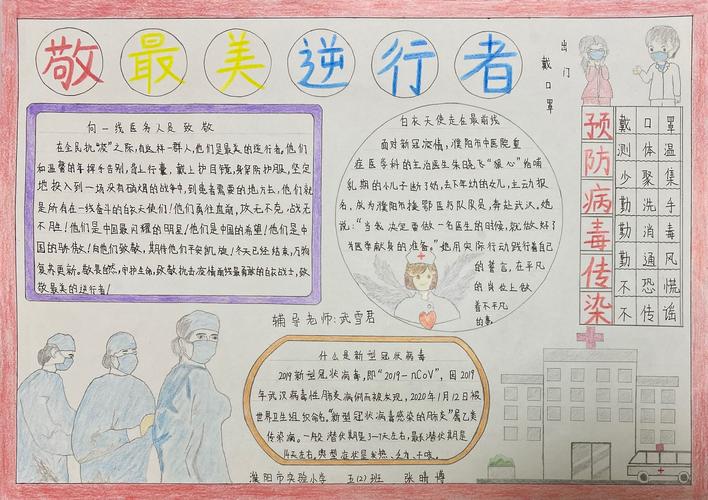 敬最美逆行者
出门
戴口罩
向一线医务人员致敬
在全民抗"疫"之际,有这样一群人,他们是最美的逆行者。他们
和温馨的年挥手告别,背上行囊,戴上护目镜,身穿防护服,坚定
地投入到一场没有硝烟的战争中,到患者需要的地方去,他们就
是所有在一线奋斗的白衣天使!他们勇往直前,攻无不克,战无
不胜!他们是中国最闪耀的明星!他们是中国的希望!他们是中
国的骄傲!向他们致敬,期待他们平安凯旋!冬天已经结束,万物
复苏更新。敬畏自然,守护生命,致敬抗击疫情前线最勇敢的白衣战士,致
敬最美的逆行者!
白衣天使走在最前线
面对新冠疫情,濮阳市中医院重
症医学科的主治医生朱晓飞"狠心"给哺
乳期的小儿子断了奶,告下年幼的女儿,主动报
名,成为濮阳市援鄂医务队队员,奔赴武汉。她
说:"当我决定要做一名医生的时候,就做好了
为医学献身的准备。"她用实际行动践行着自己
的誓言,在平凡
的岗位上做
着不平凡
的事。
预防病毒传染
戴口罩
测体温
少聚集
勤洗手
勤消毒
勤通风
不恐慌
不传谣
辅导老师:武雪君
什么是新型冠状病毒
2019新型冠状病毒,即"2019-nCoV",因2019
年武汉病毒性肺炎病例而被发现,2020年1月12日被
世界卫生组织命名。"新型冠状病毒感染的肺炎"属乙类
传染病。一般潜伏期是3-7天左右,最长潜伏期是
14天左右,典型症状是发热、乏力、干咳。
濮阳市实验小学 五(2)班 张晴博